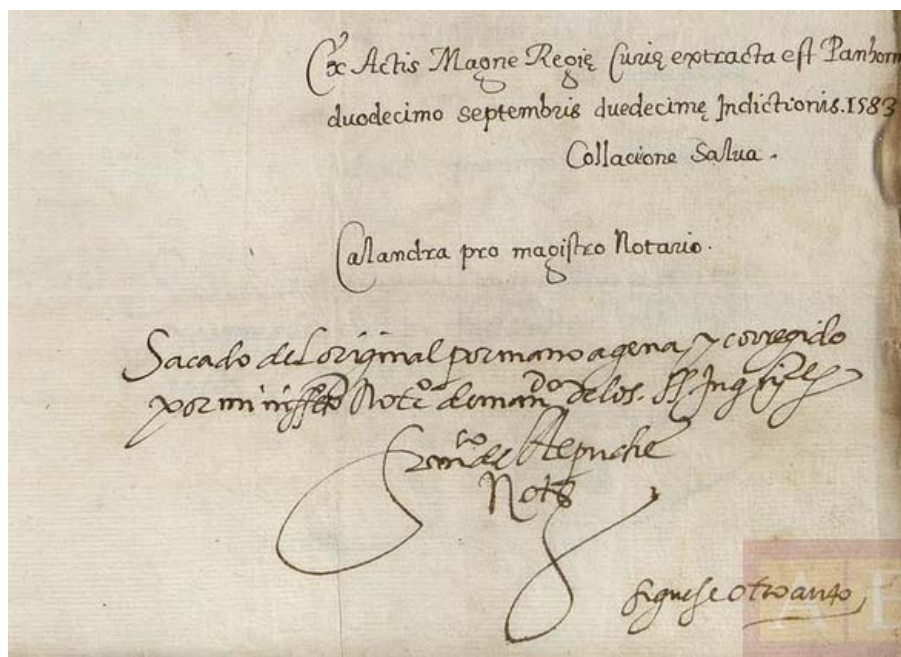 Ex Actis Magne Regię Curię extracta est Panhorm
duodecimo septembris duedecimę Indictionis. 1583
Collacione Salua.
Calandra pro magistro Notario.
Sacado del original por mano agena, y corregido
por mi Notº de manDº de los. SS
de
Notº
siguese otro auto,
AE